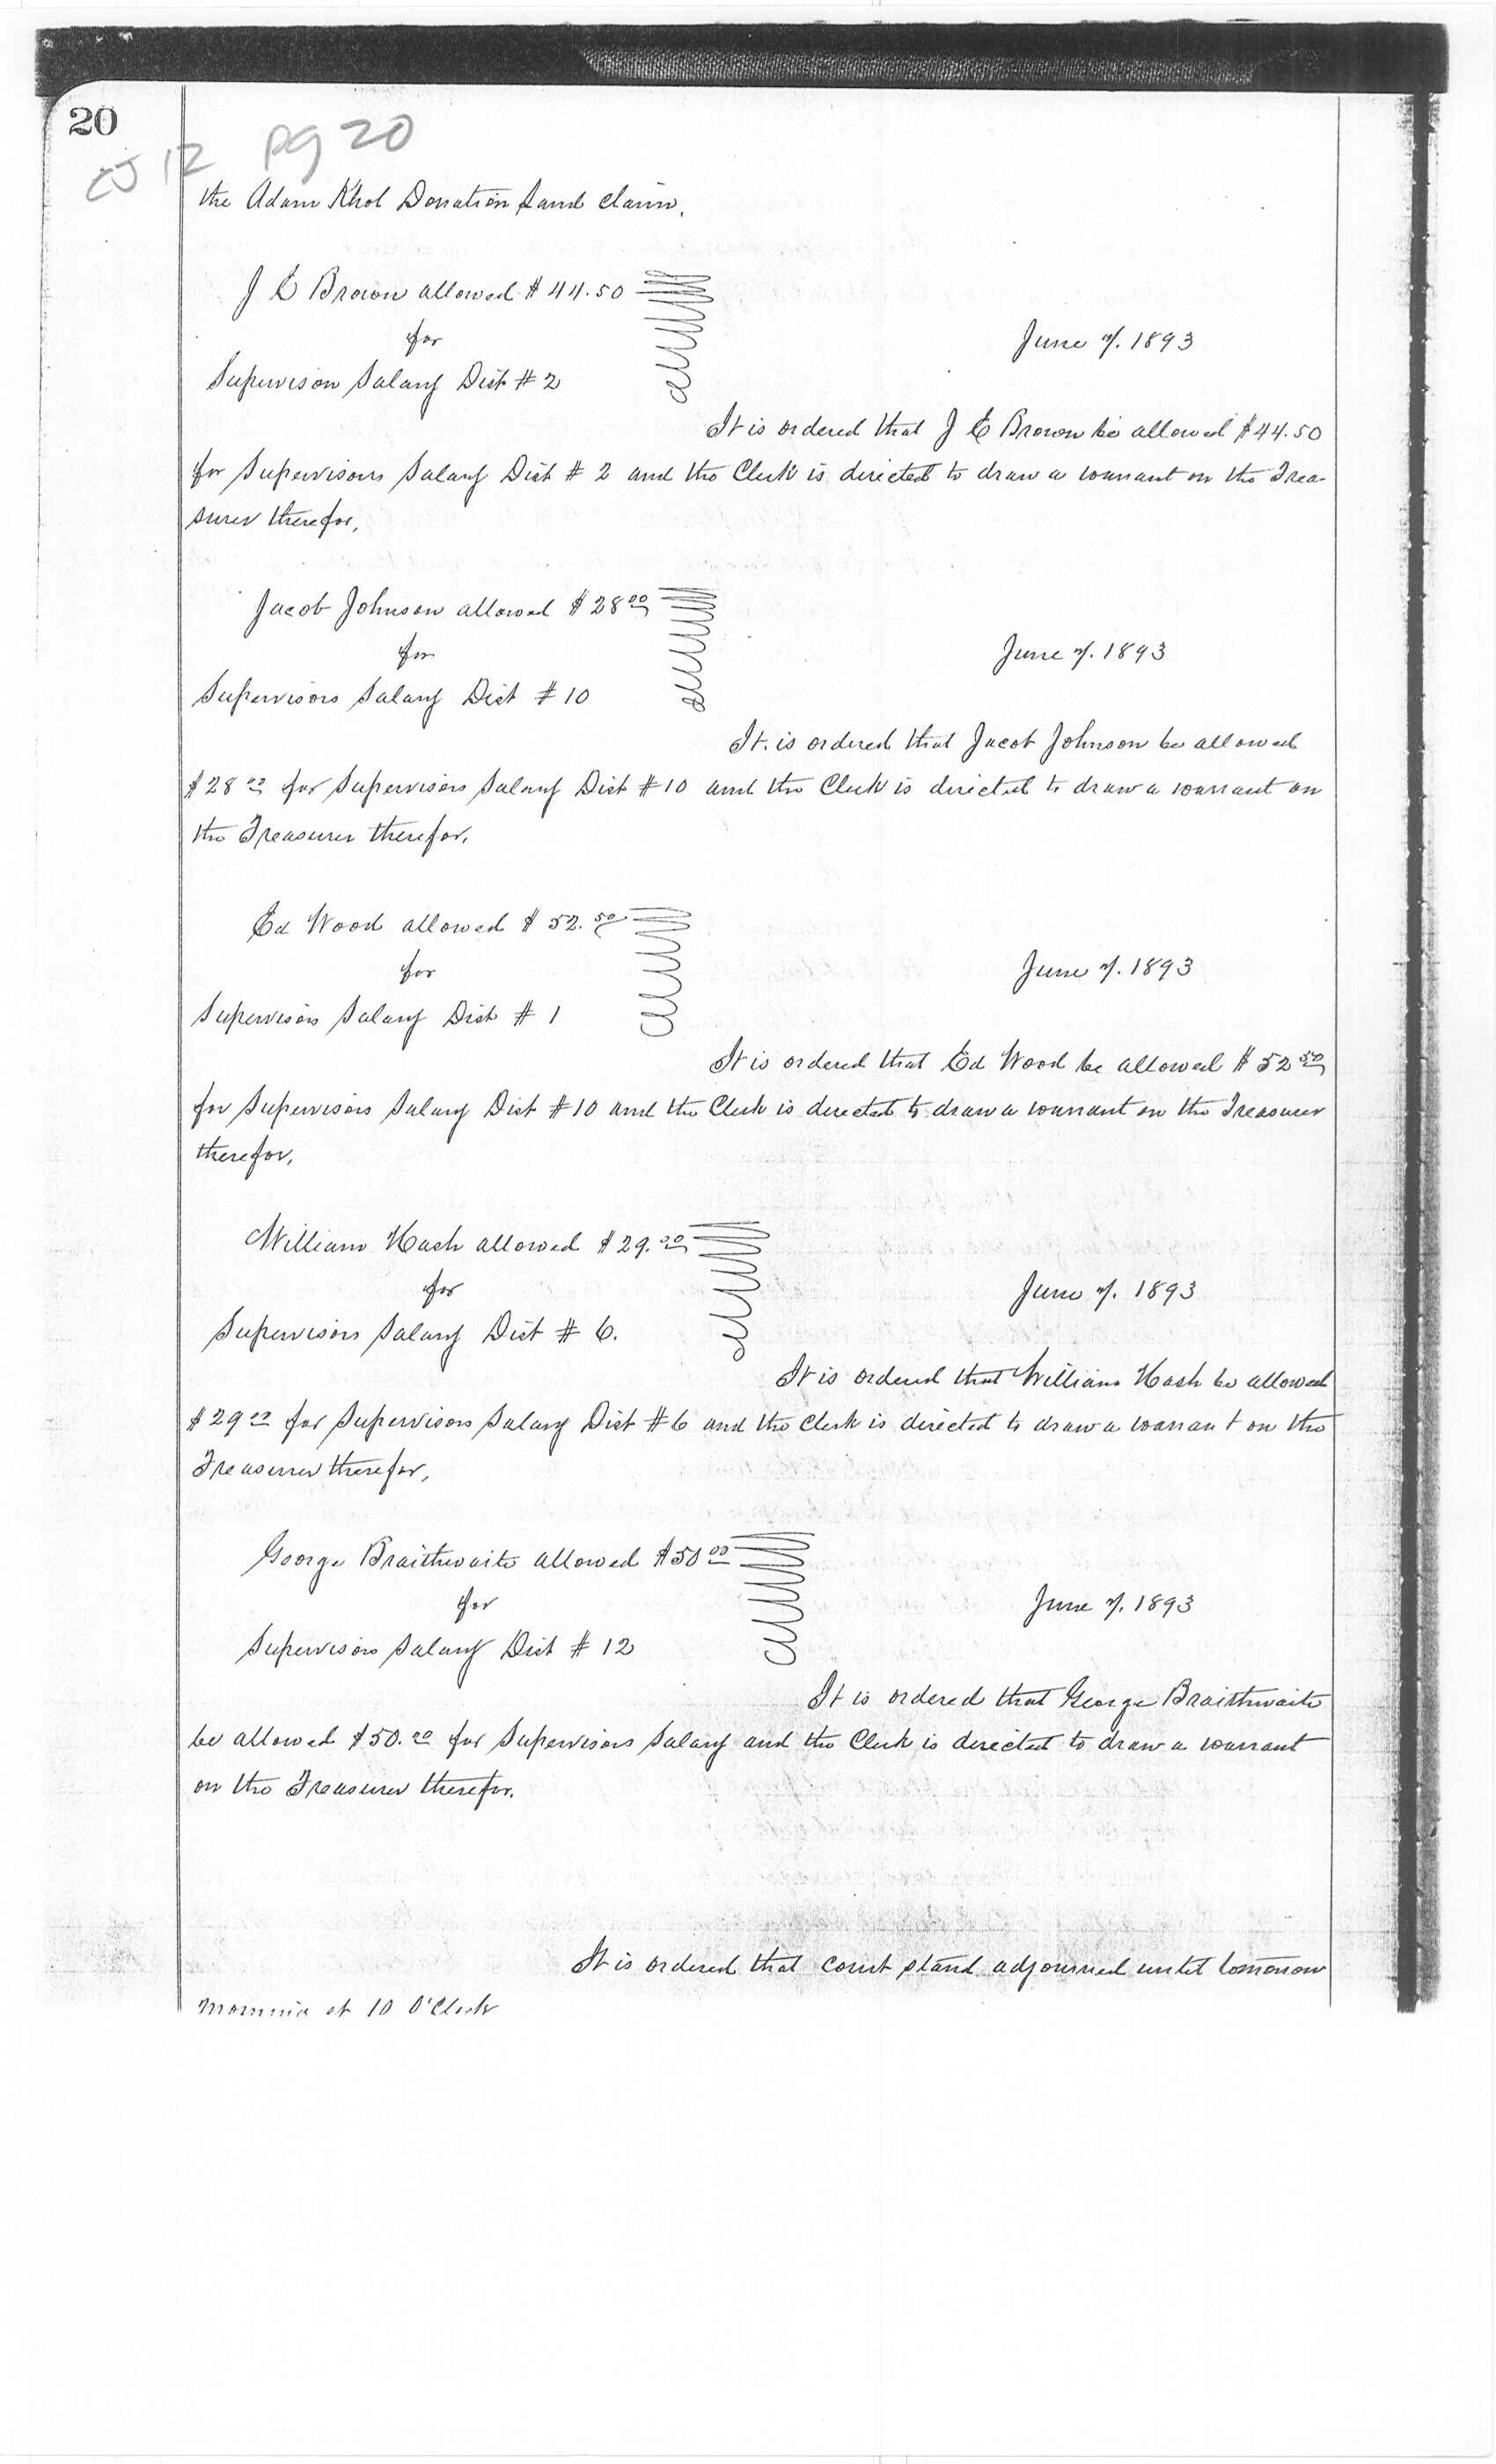 20
CJ 12 pg 20
the Adam Khol Donation Land Claim.
J E Brown allowed $44.50
for
June 7. 1893
Supervison Salary Dist #2
It is ordered that J E Brown be allowed $44.50
for Supervisors Salary Dist # 2 and the Clerk is directed to draw a warrant on the Trea-
surer therefor,
Jacob Johnson allowed $28 00
for
June 7. 1893
Supervisors Salary Dist #10
It. is ordered that Jacob Johnson be allowed
$28 00 for Supervisors Salary Dist #10 and the Clerk is directed to draw a warrant on
the Treasurer therefor,
Ed Wood allowed $52.50
for
June 7. 1893
Supervisors Salary Dist # 1
It is ordered that Ed Wood be allowed $52 50
for Supervisors Salary Dist #10 and the Clerk is directed to draw a warrant on the Treasurer
therefor,
William Hash allowed $29.00
for
June 7. 1893
Supervisors Salary Dist # 6.
It is ordered that William Hash be allowed
$29 00 for Supervisors Salary Dist #6 and the Clerk is directed to draw a warrant on the
Treasurer therefor,
George Braithwaite allowed $50 00
for
June 7. 1893
Supervisors Salary Dist # 12
It is ordered that George Braithwaite
be allowed $50.00 for Supervisors Salary and the Clerk is directed to draw a warrant
on the Treasurer therefor.
It is ordered that court stand adjourned until tomorrow
morning at 10 O'Clock